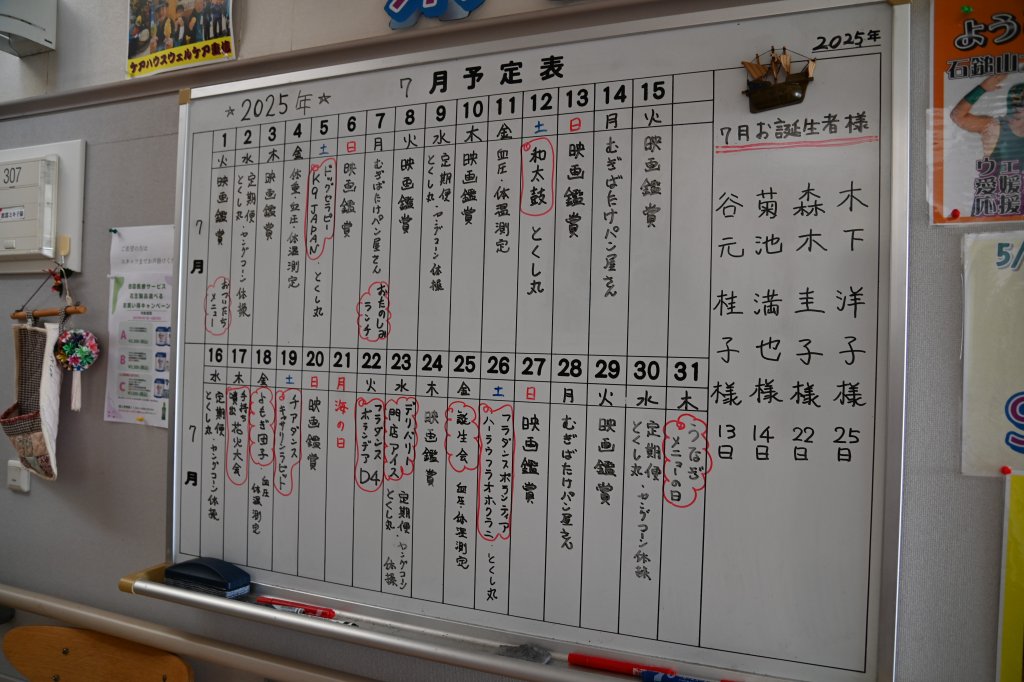 ケアハウスウェルケア重信
307
☆2025年☆
7月予定表
7月
1 火 映画鑑賞 おついたちメニュー
2 水 定期便 とくし丸・ヤングコーン体操
3 木 映画鑑賞
4 金 体重・血圧・体温測定
5 土 ドッグセラピー K9 JAPAN・とくし丸
6 日 映画鑑賞
7 月 むぎばたけパン屋さん おたのしみランチ
8 火 映画鑑賞
9 水 定期便・ヤングコーン体操 とくし丸
10 木 映画鑑賞
11 金 血圧・体温測定
12 土 和太鼓 とくし丸
13 日 映画鑑賞
14 月 むぎばたけパン屋さん
15 火 映画鑑賞
7月
16 水 定期便 とくし丸・ヤングコーン体操
17 木 手持ち 噴出 花火大会
18 金 よもぎ団子 血圧 体温測定
19 土 チアダンス
20 日 映画鑑賞
21 月 海の日
22 火 フラダンス ボランテアD4
23 水 デリバリー 専門店アイス 定期便・ヤングコーン とくし丸 体操
24 木 映画鑑賞
25 金 誕生会 血圧・体温測定
26 土 フラダンスボランティア とくし丸
27 日 映画鑑賞
28 月 むぎばたけパン屋さん
29 火 映画鑑賞
30 水 定期便 とくし丸・ヤングコーン体操
31 木 うなぎメニューの日
2025年
7月お誕生者様
木下洋子様 25日
森木圭子様 22日
菊池満也様 14日
谷元桂子様 13日
よう
石鎚山
ウエ
愛媛
応援
5/